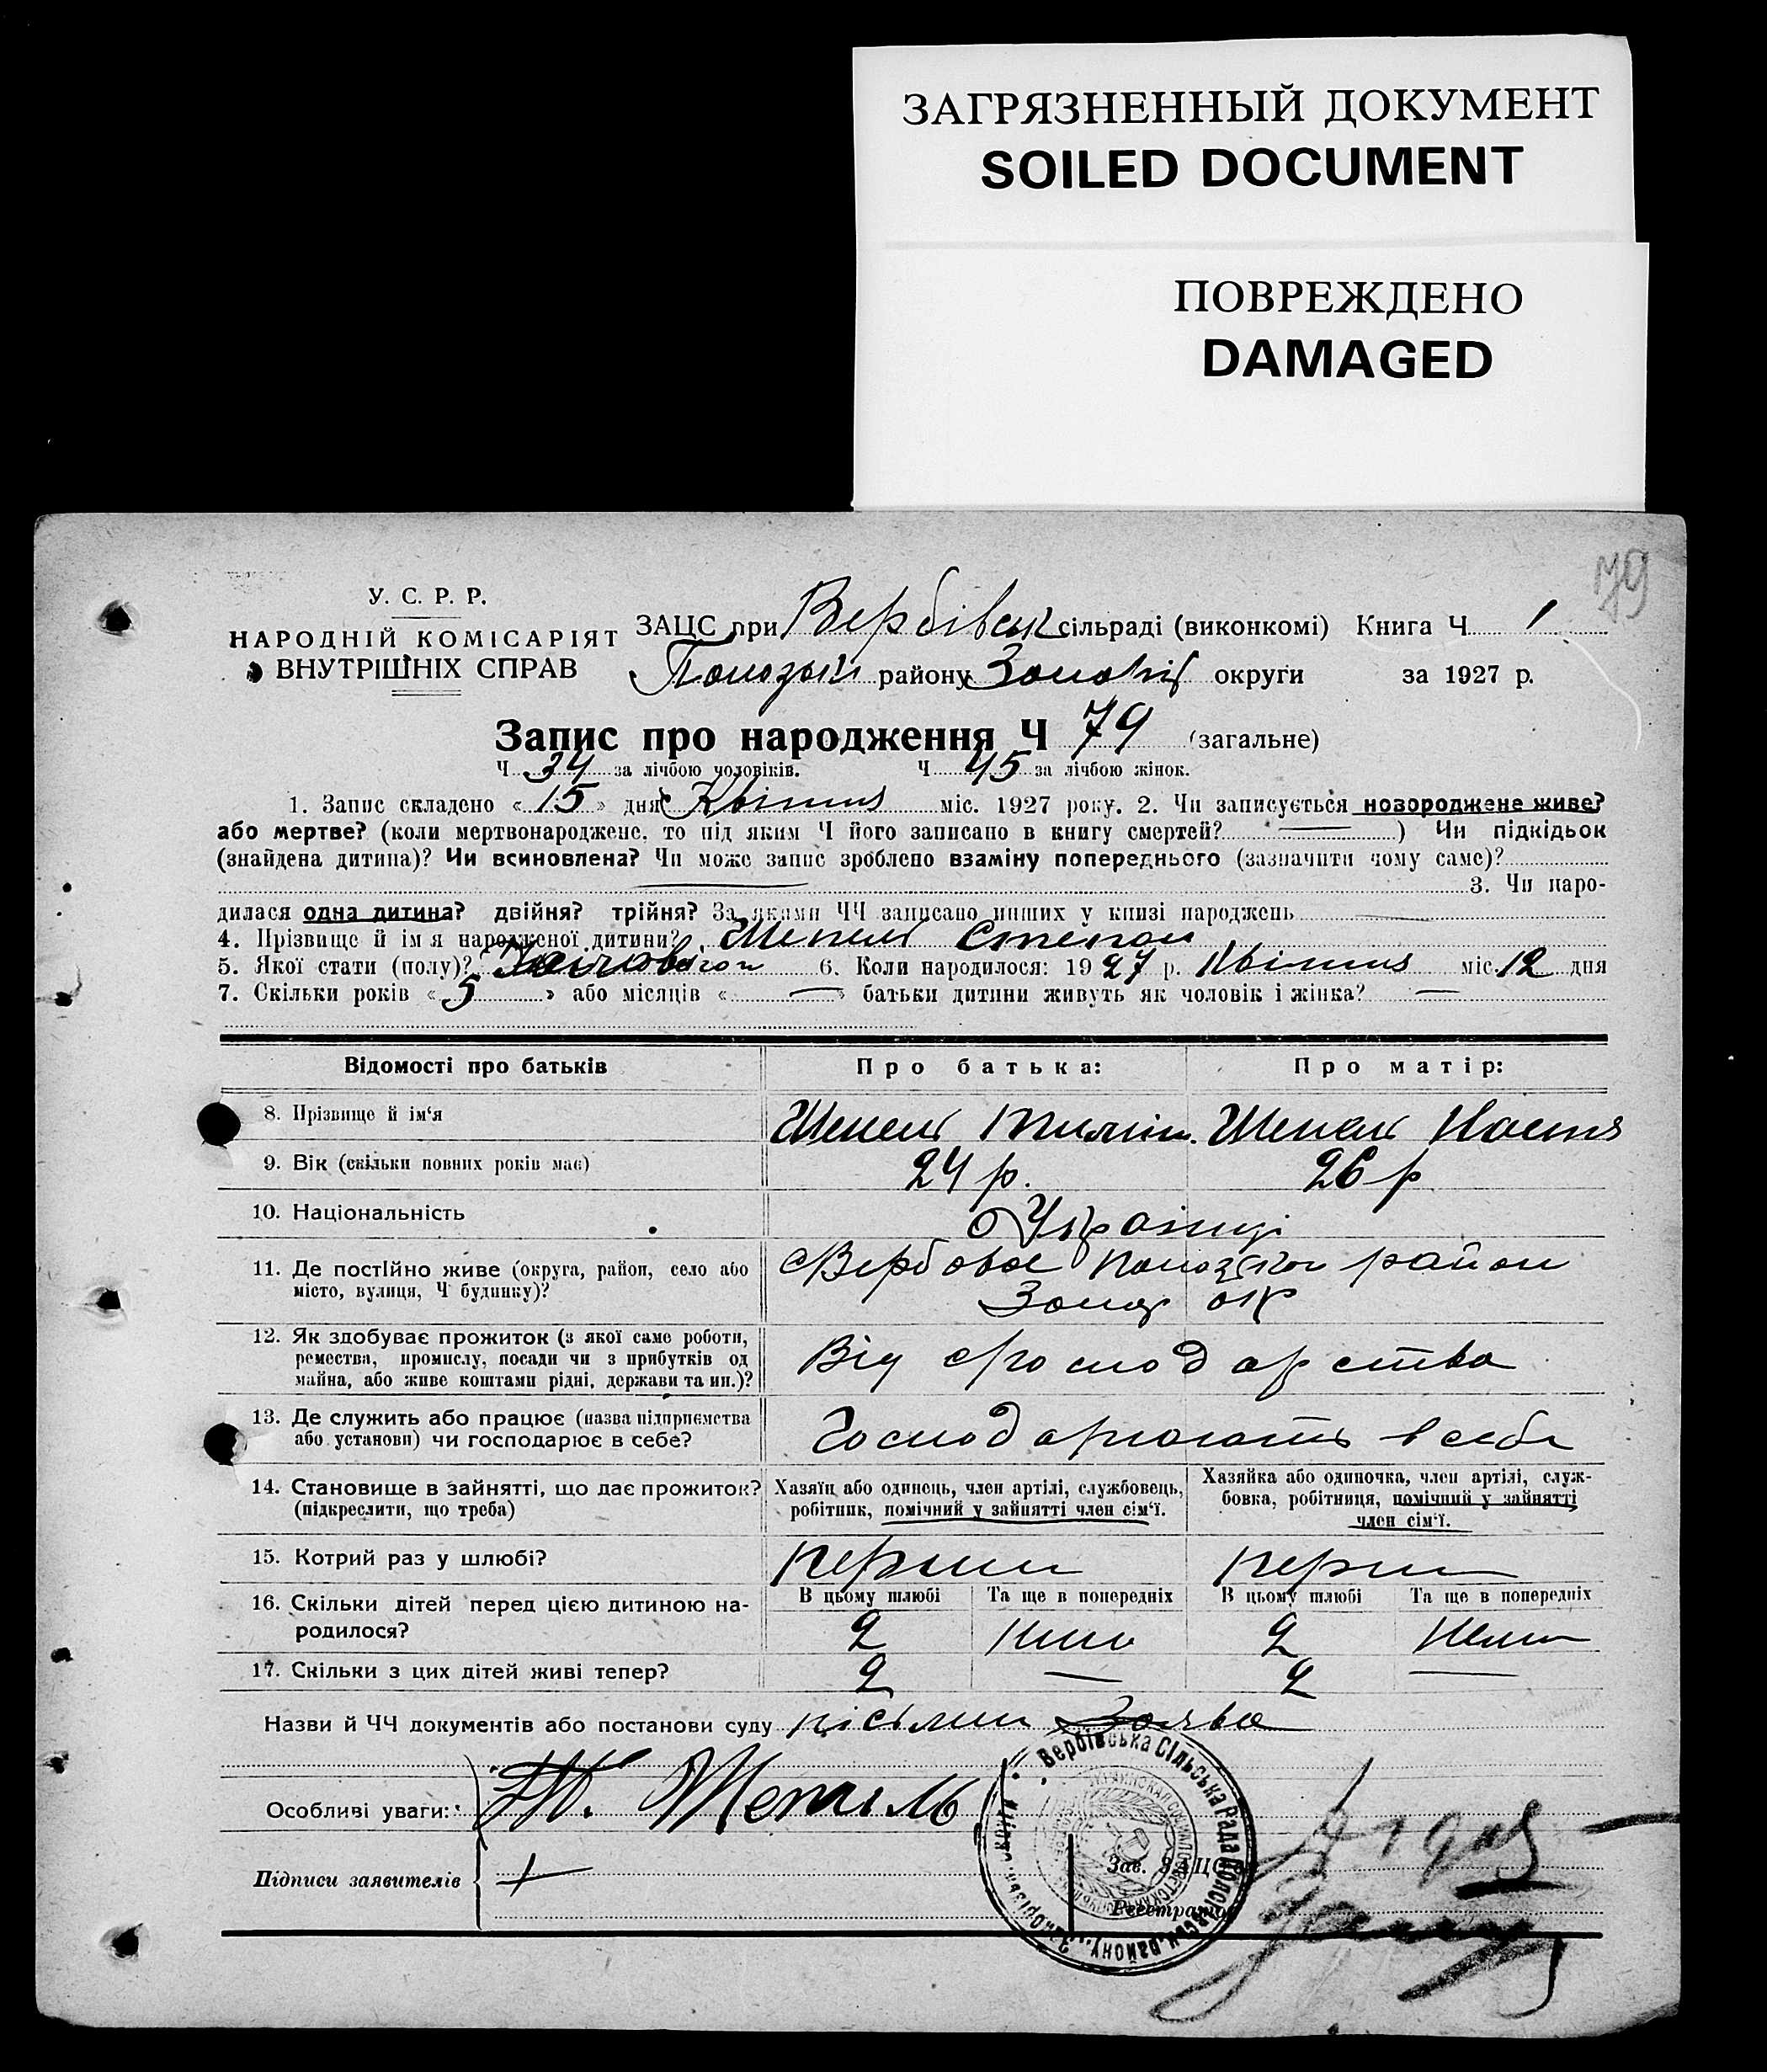 ЗАГРЯЗНЕННЫЙ ДОКУМЕНТ
SOILED DOCUMENT
ПОВРЕЖДЕНО
DAMAGED
79
У. С. Р. Р.
НАРОДНІЙ КОМІСАРІЯТ
ВНУТРІШНІХ СПРАВ
ЗАЦС при Вербівськ сільраді (виконкомі) Книга Ч 1
району округи за 1927 р.
Запис про народження Ч 79 (загальне)
Ч 34 за лічбою чоловіків. Ч 45 за лічбою жінок.
1. Запис складено « 15 » дня Квітня міс. 1927 року. 2. Чи записується новороджене живе?
або мертве? (коли мертвонароджене, то під яким Ч його записано в книгу смертей? — ) Чи підкідьок
(знайдена дитина)? Чи всиновлена? Чи може запис зроблено взаміну попереднього (зазначити чому саме)?
— 3. Чи наро-
дилася одна дитина? двійня? трійня? За якими ЧЧ записано инших у книзі народжень —
4. Прізвище й ім я народженої дитини? Шепель Степан
5. Якої стати (полу)? 6. Коли народилося: 1927 р. Квітня міс. 12 дня
7. Скільки років « 5 » або місяців « — » батьки дитини живуть як чоловік і жінка? —
Відомості про батьків Про батька: Про матір:
8. Прізвище й ім‘я Шепель Шепель Настя
9. Вік (скільки повних років має) 24 р. 26 р
10. Національність Українці
11. Де постійно живе (округа, район, село або Вербове район
місто, вулиця, Ч будинку)? Запор ок
12. Як здобуває прожиток (з якої саме роботи,
ремества, промислу, посади чи з прибутків од Від господарства
майна, або живе коштами рідні, держави та ин.)?
13. Де служить або працює (назва підприємства
або установи) чи господарює в себе? Господарюють в себе
14. Становище в зайнятті, що дає прожиток?
(підкреслити, що треба)
Хазяїн або одинець, член артілі, службовець,
робітник, помічний у зайнятті член сім‘ї.
Хазяйка або одиночка, член артілі, служ-
бовка, робітниця, помічний у зайнятті
член сім‘ї.
15. Котрий раз у шлюбі? перший перший
В цьому шлюбі Та ще в попередніх В цьому шлюбі Та ще в попередніх
16. Скільки дітей перед цією дитиною на-
родилося? 2 2
17. Скільки з цих дітей живі тепер? 2 — 2 —
Назви й ЧЧ документів або постанови суду Заява
Особливі уваги: Шепель
Підписи заявителів +
Зав. ЗАЦС
Реєстратор
Вербівська Сільська Рада Пологівськ. району, Запорізьк. округи